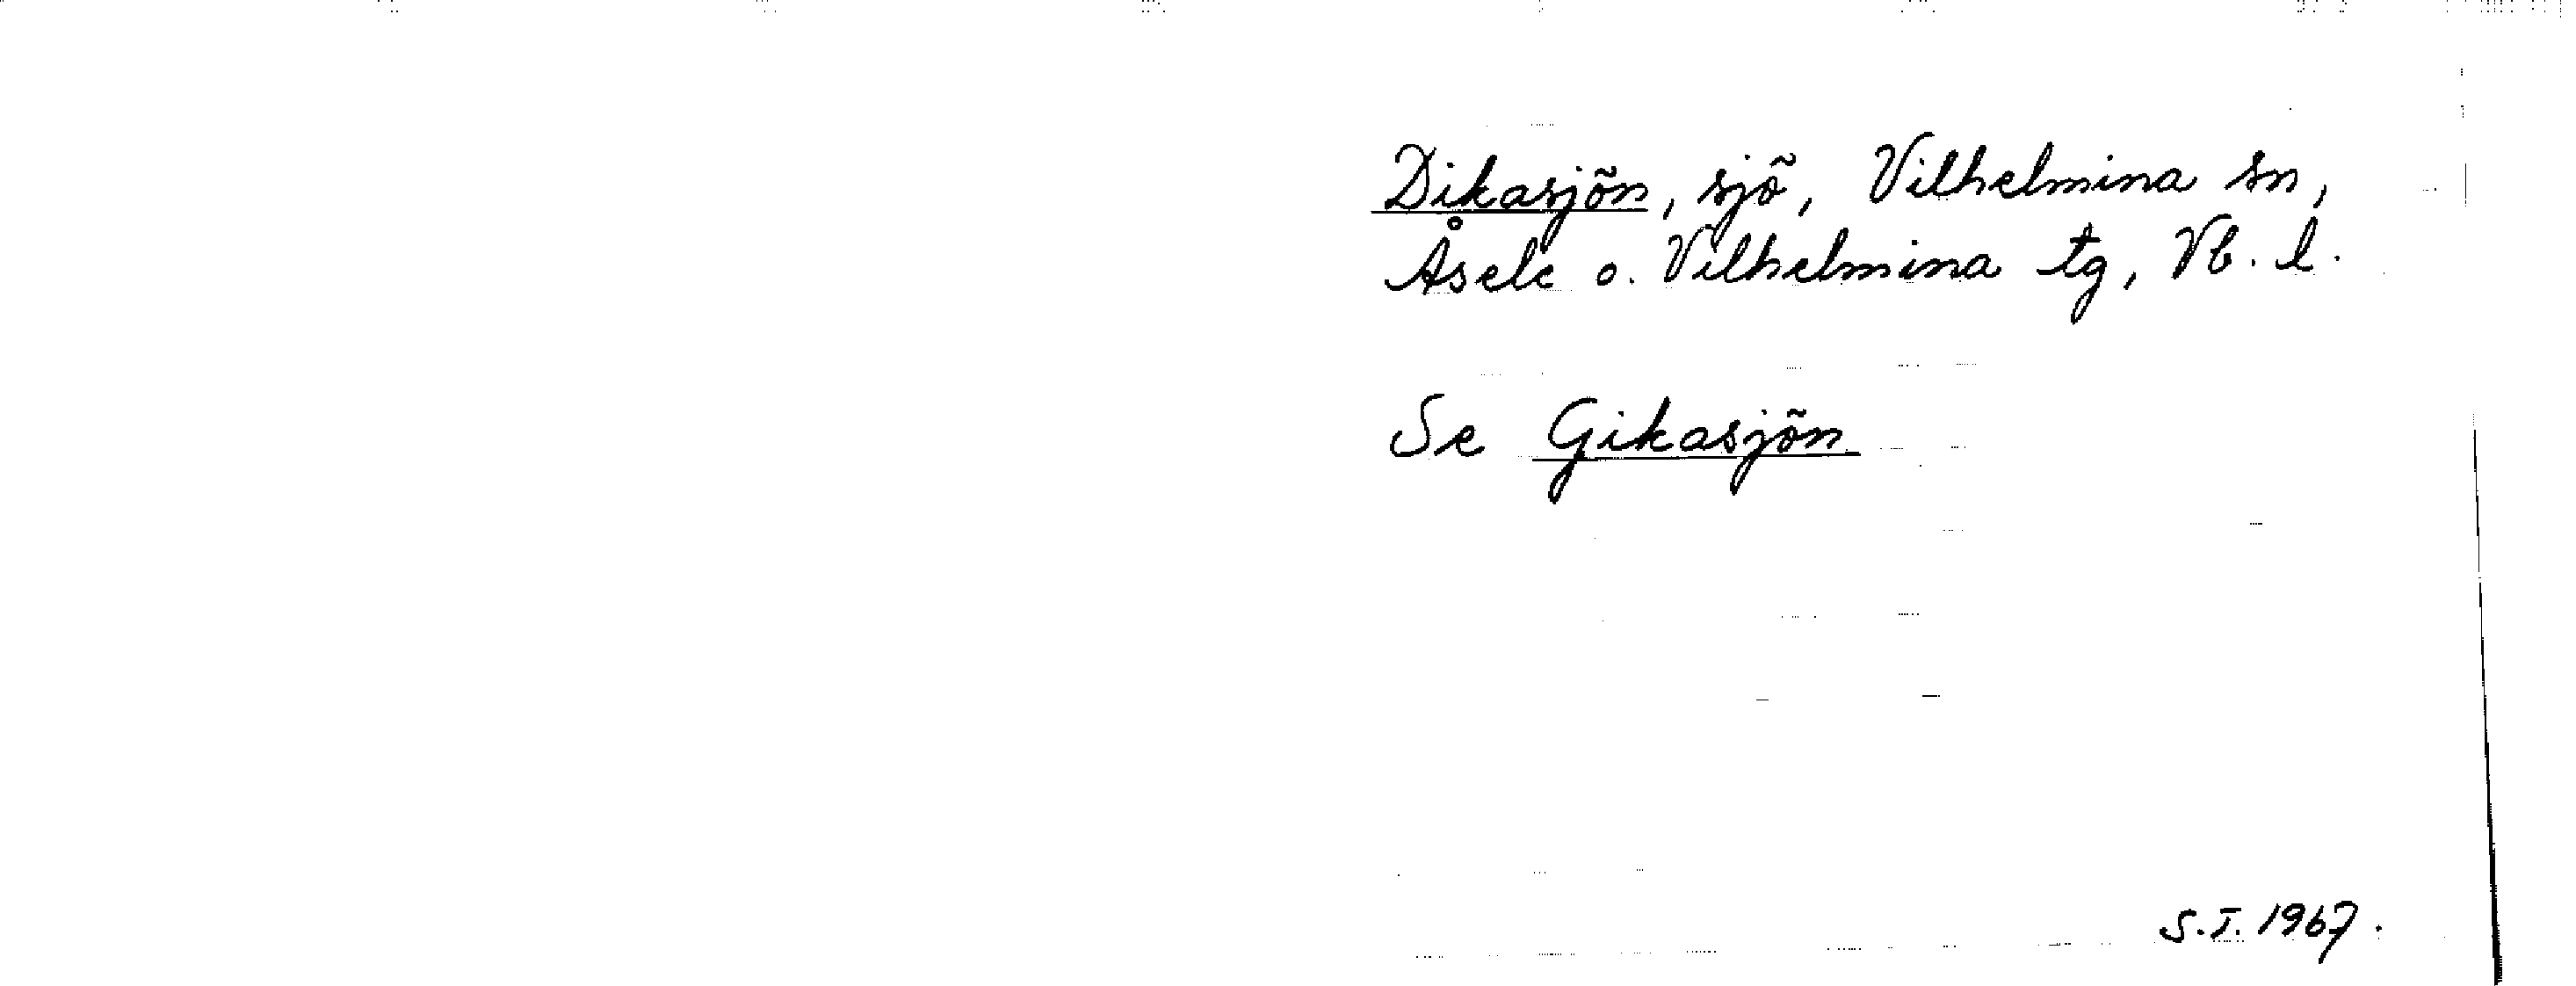 Dikasjön, sjö, Vilhelmina sn,
Åsele o. Vilhelmina tg, Vb. l.
Se Gikasjön
S.I. 1967.